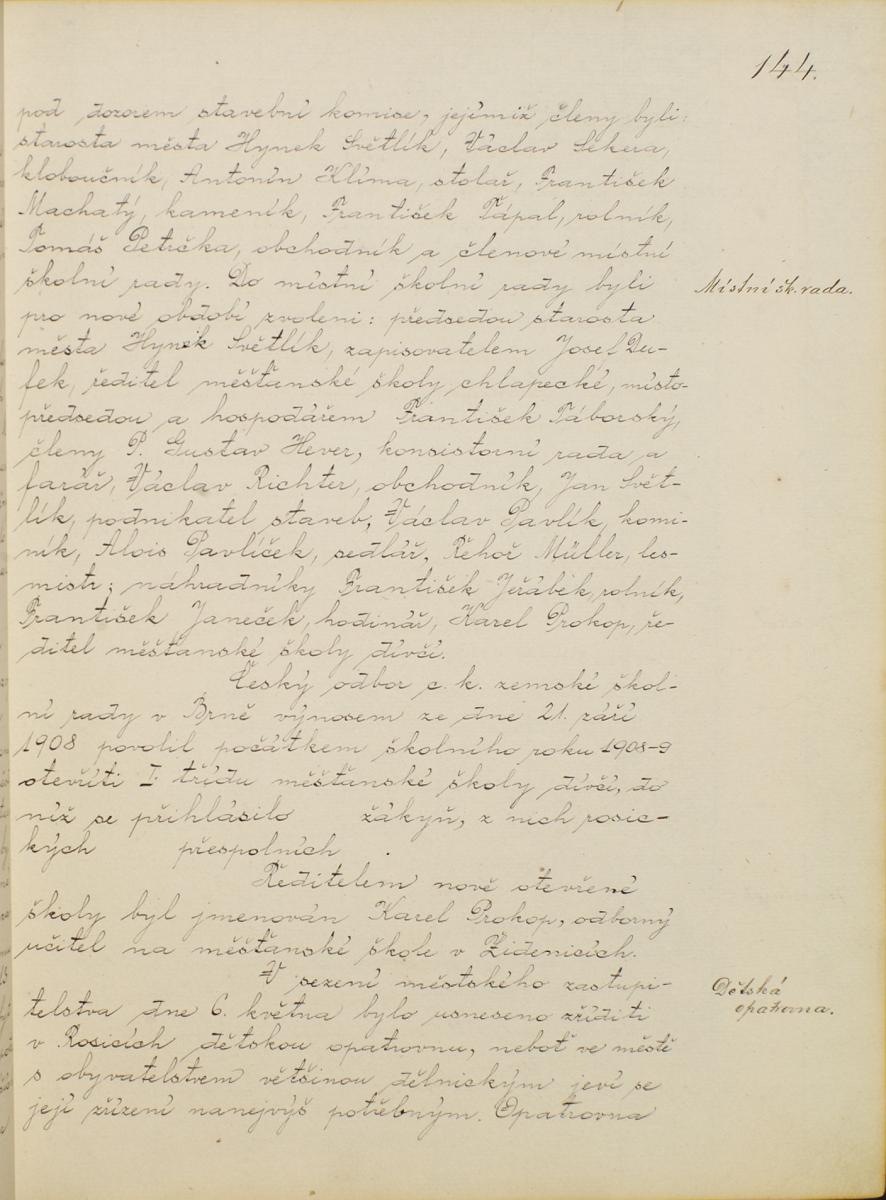 144.
pod dozorem stavební komise, jejímiž členy byli:
starosta města Hynek Světlík, Václav Sekera,
kloboučník, Antonín Klíma, stolař, František
Machatý, kameník, František Tápal, rolník,
Tomáš Petrčka, obchodník a členové místní
školní rady. Do místní školní rady byli
Místní šk. rada.
pro nové období zvoleni: předsedou starosta
města Hynek Světlík, zapisovatelem Josef Du-
fek, ředitel měšťanské školy chlapecké, místo-
předsedou a hospodářem František Táborský,
členy P. Gustav Hever, konsistorní rada a
farář, Václav Richter, obchodník, Jan Svět-
lík, podnikatel staveb, Václav Pavlík, komi-
ník, Alois Pavlíček, sedlář, Řehoř Müller, les-
mistr; náhradníky František Jeřábek, rolník,
František Janeček, hodinář, Karel Prokop, ře-
ditel měšťanské školy dívčí.
Český odbor c. k. zemské škol-
ní rady v Brně výnosem ze dne 21. září
1908 povolil počátkem školního roku 1908-9
otevříti I. třídu měšťanské školy dívčí, do
níž se přihlásilo žákyň, z nich rosic-
kých přespolních .
Ředitelem nově otevřené
školy byl jmenován Karel Prokop, odborný
učitel na měšťanské škole v Židenicích.
V sezení městského zastupi-
Dětská
opatrovna.
telstva dne 6. května bylo usneseno zříditi
v Rosicích dětskou opatrovnu, neboť ve městě
s obyvatelstvem většinou dělnickým jeví se
její zřízení nanejvýš potřebným. Opatrovna